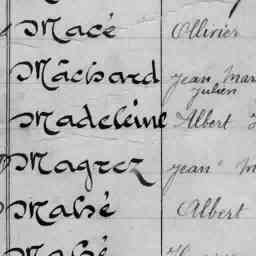 Macé Ollivier
Mâchard Jean Mar
Julien
Madeleine Albert
Magrez Jean M
Mahé Albert
Mahé